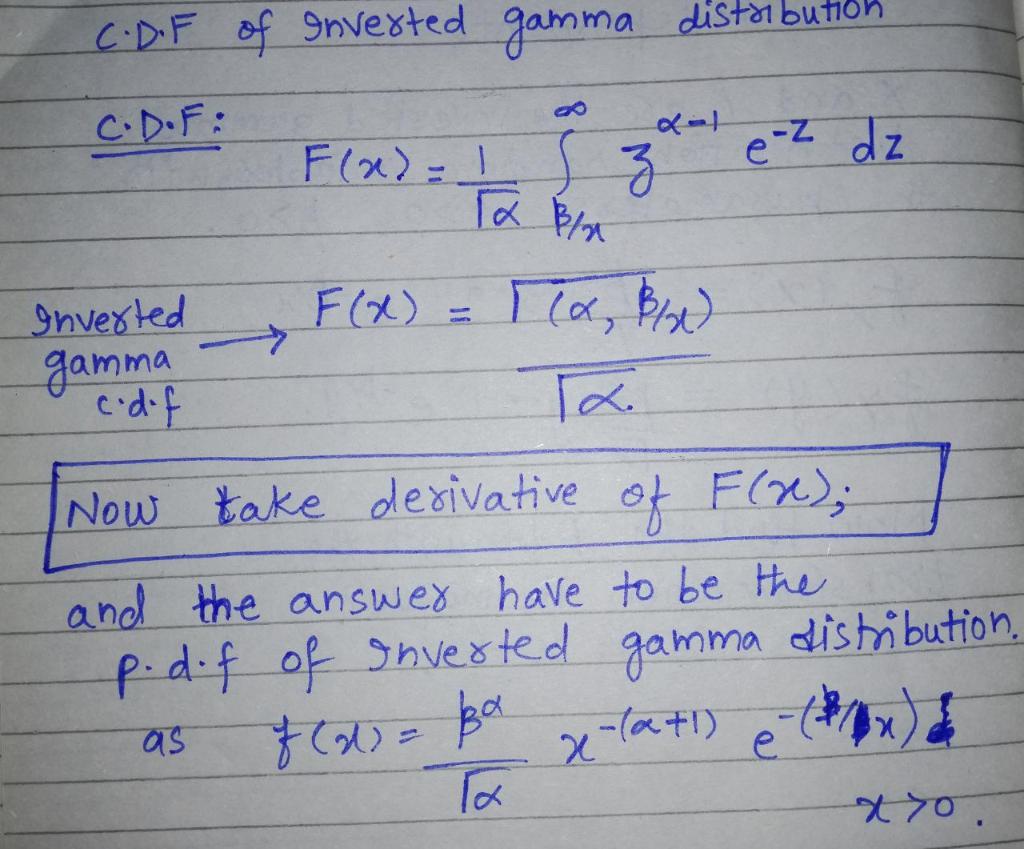 C.D.F of Inverted gamma distribution
C.D.F:
F(x) = 1/Γα ∫_{β/x}^{∞} z^{α-1} e^{-z} dz
Inverted gamma c.d.f → F(x) = Γ(α, β/x) / Γα.
Now take derivative of F(x);
and the answer have to be the
p.d.f of Inverted gamma distribution.
as f(x) = β^α/Γα x^{-(α+1)} e^{-(β/x)}
x>0.